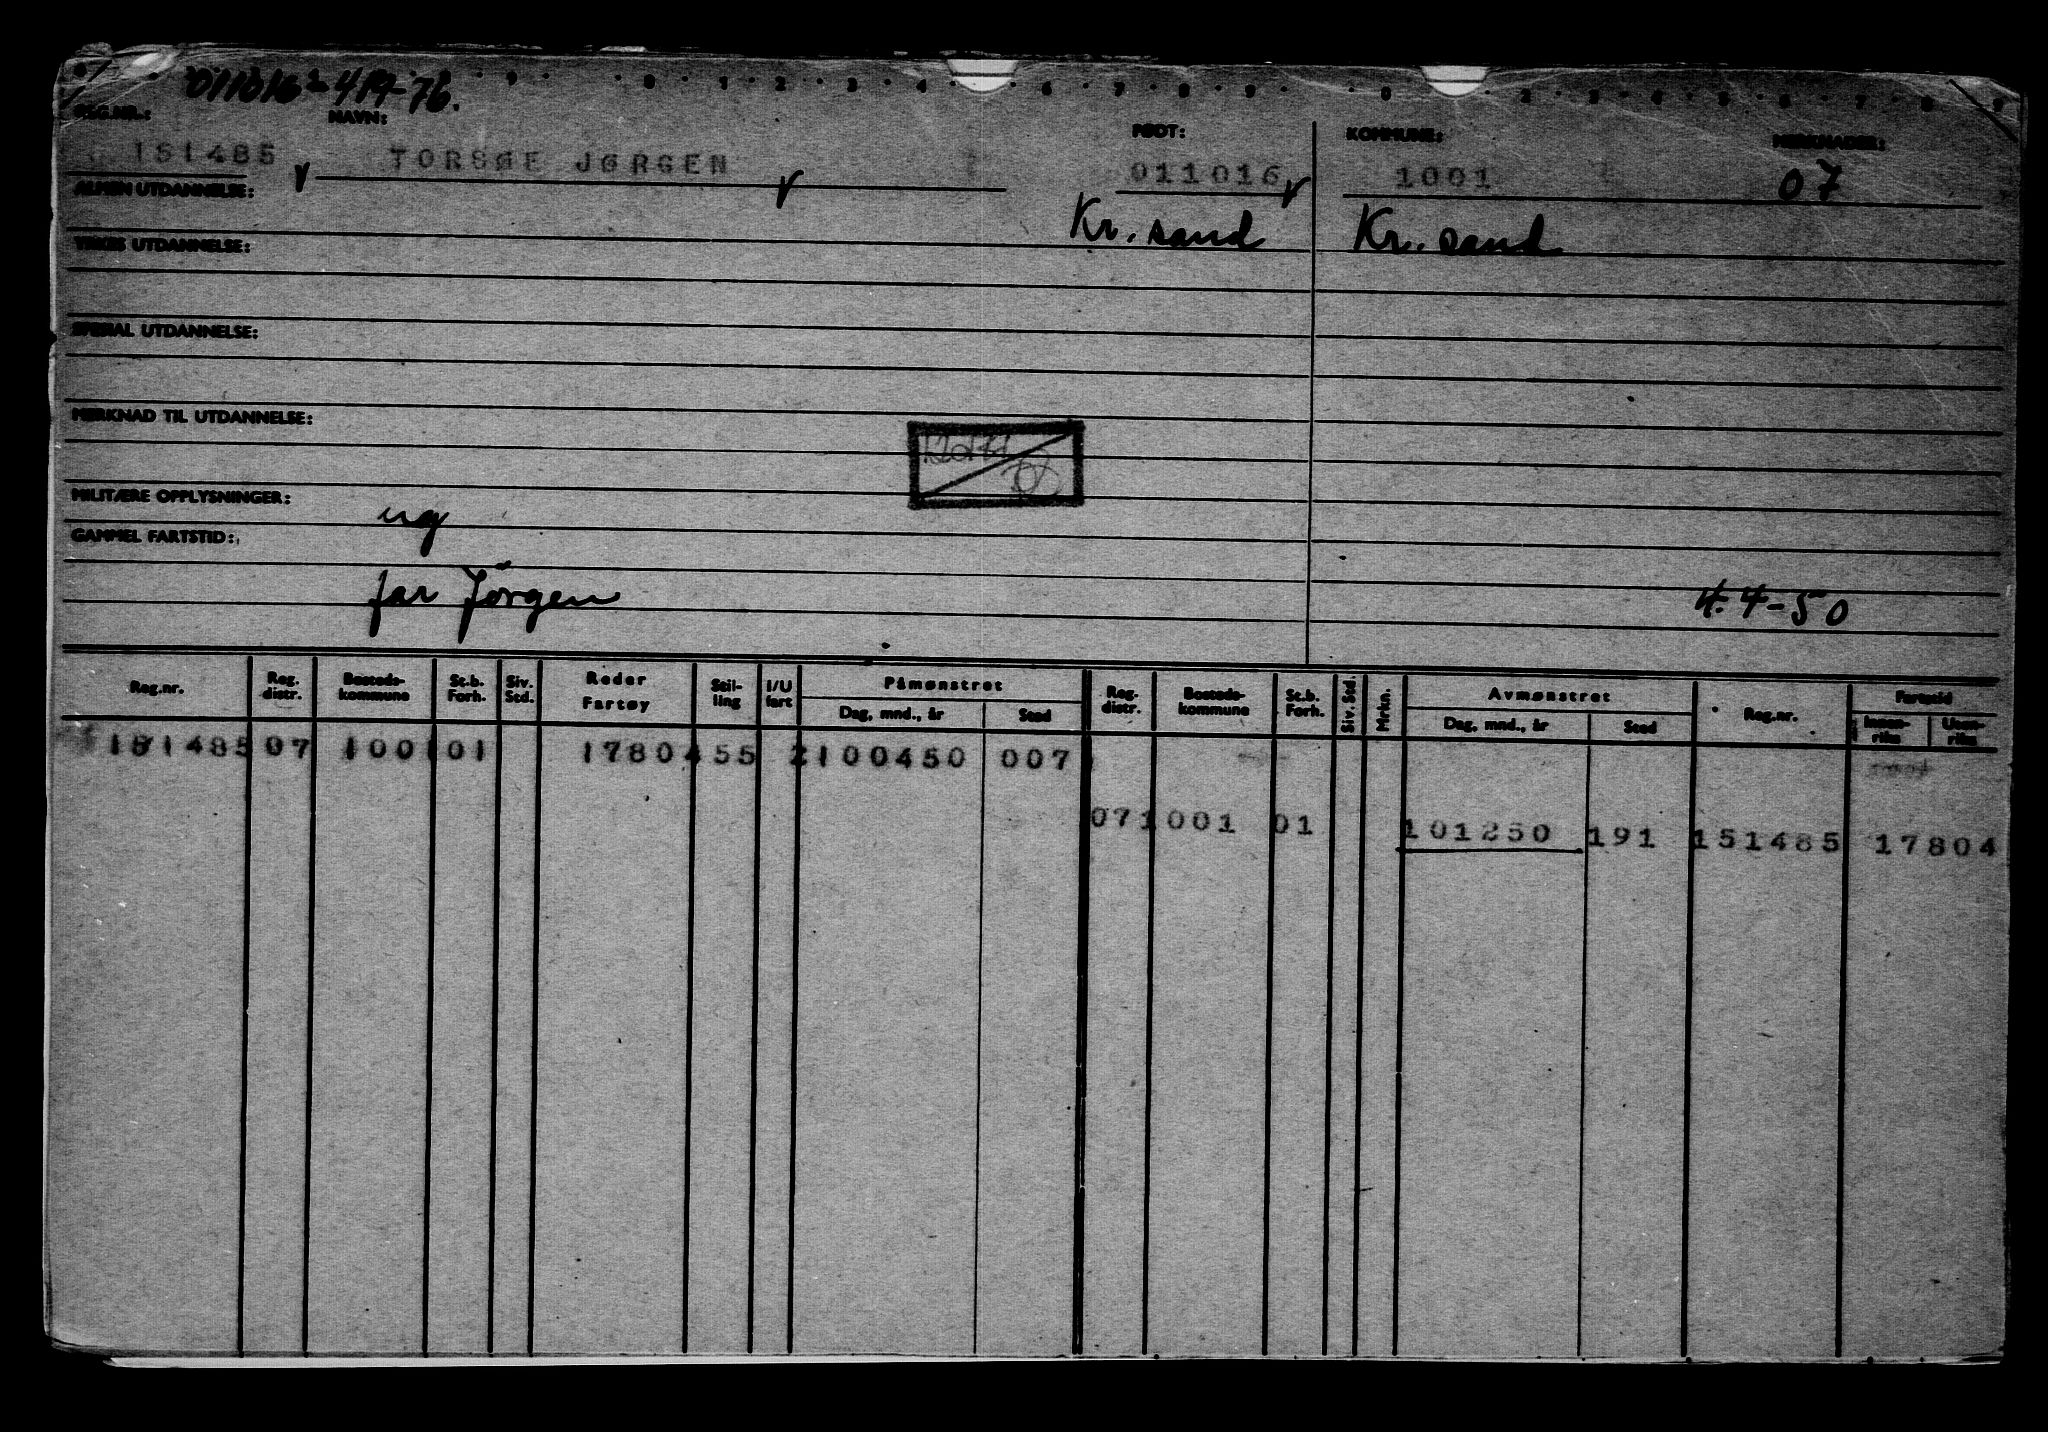 011016-419-76.
REG.NR.: NAVN: FØDT: KOMMUNE: MERKNADER:
151485 TORSØE JØRGEN 011016 1001 07
ALMEN UTDANNELSE: Kr. sand Kr. sand
YRKES UTDANNELSE:
SPESIAL UTDANNELSE:
MERKNAD TIL UTDANNELSE:
MILITÆRE OPPLYSNINGER: ug
GAMMEL FARTSTID:
far Jörgen 4.4-50
Reg.nr. Reg. distr. Bosteds-kommune St.b. Forh. Siv. Std. Reder Fartøy Stil-ling I/U fart Påmønstret Dag, mnd., år Sted Reg. distr. Bosteds-kommune St.b. Forh. Siv. Std. Mrkn. Avmønstret Dag, mnd., år Sted Reg.nr. Fartstid Innen-riks Uten-riks
151485 07 1001 01 17804 55 2 100450 007
07 1001 01 101250 191 151485 17804